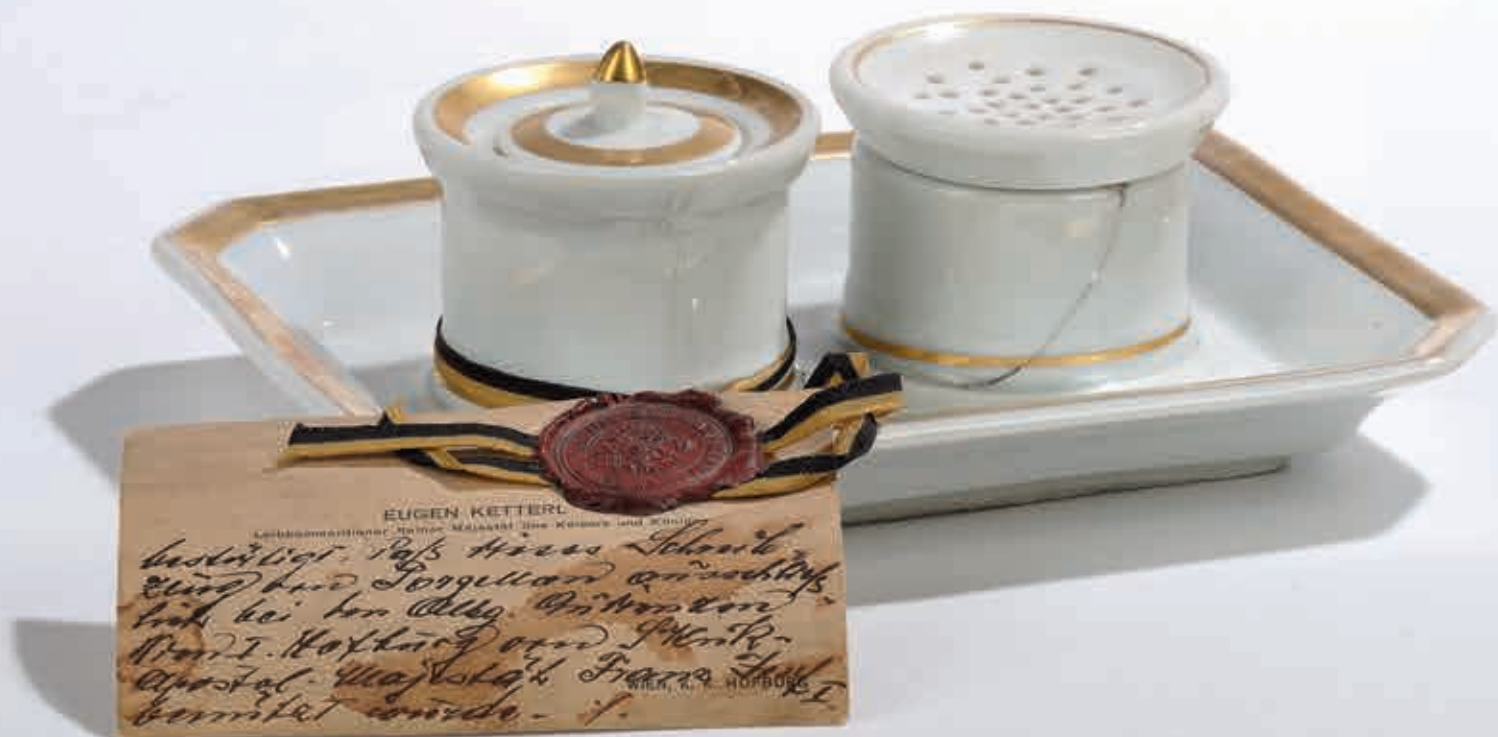 EUGEN KETTERL
Leibkammerdiener Seiner Majestät des Kaisers und Königs
bestätigt, daß dieses Schreib-
zeug von Porzellan ausschließ-
lich bei den Allg. Audienzen
in der k. Hofburg von Sr. k. u. k.
Apostol. Majestät Franz Josef I
benützt wurde.
WIEN, K. K. HOFBURG